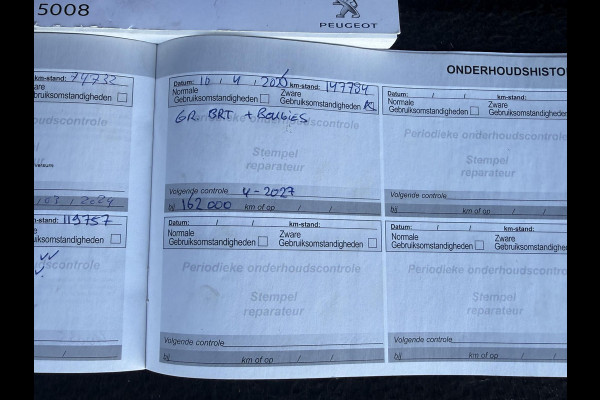 5008
PEUGEOT
ONDERHOUDSHISTO
km-stand: 74732
Zware
ebruiksomstandigheden
03 / 2024
km-stand: 119757
Zware
uiksomstandigheden
Datum: 10 / 4 / 2026 km-stand: 147784
Normale Gebruiksomstandigheden
Zware Gebruiksomstandigheden
GR. BRT + BOUGIES
Periodieke onderhoudscontrole
Stempel
reparateur
Volgende controle 4-2027
bij 162000 km of op / /
Datum: / / km-stand:
Normale Gebruiksomstandigheden
Zware Gebruiksomstandigheden
Periodieke onderhoudscontrole
Stempel
reparateur
Volgende controle
bij km of op / /
Datum: / / km-stand:
Normale Gebruiksomstandigheden
Zware Gebruiksomstandighede
Periodieke onderhoudscontrole
Stempel
reparateur
Volgende controle
bij km of op /
Datum: / / km-stand:
Normale Gebruiksomstandigheden
Zware Gebruiksomstandighe
Periodieke onderhoudscontrole
Stempel
reparateur
Volgende controle
bij km of op / /